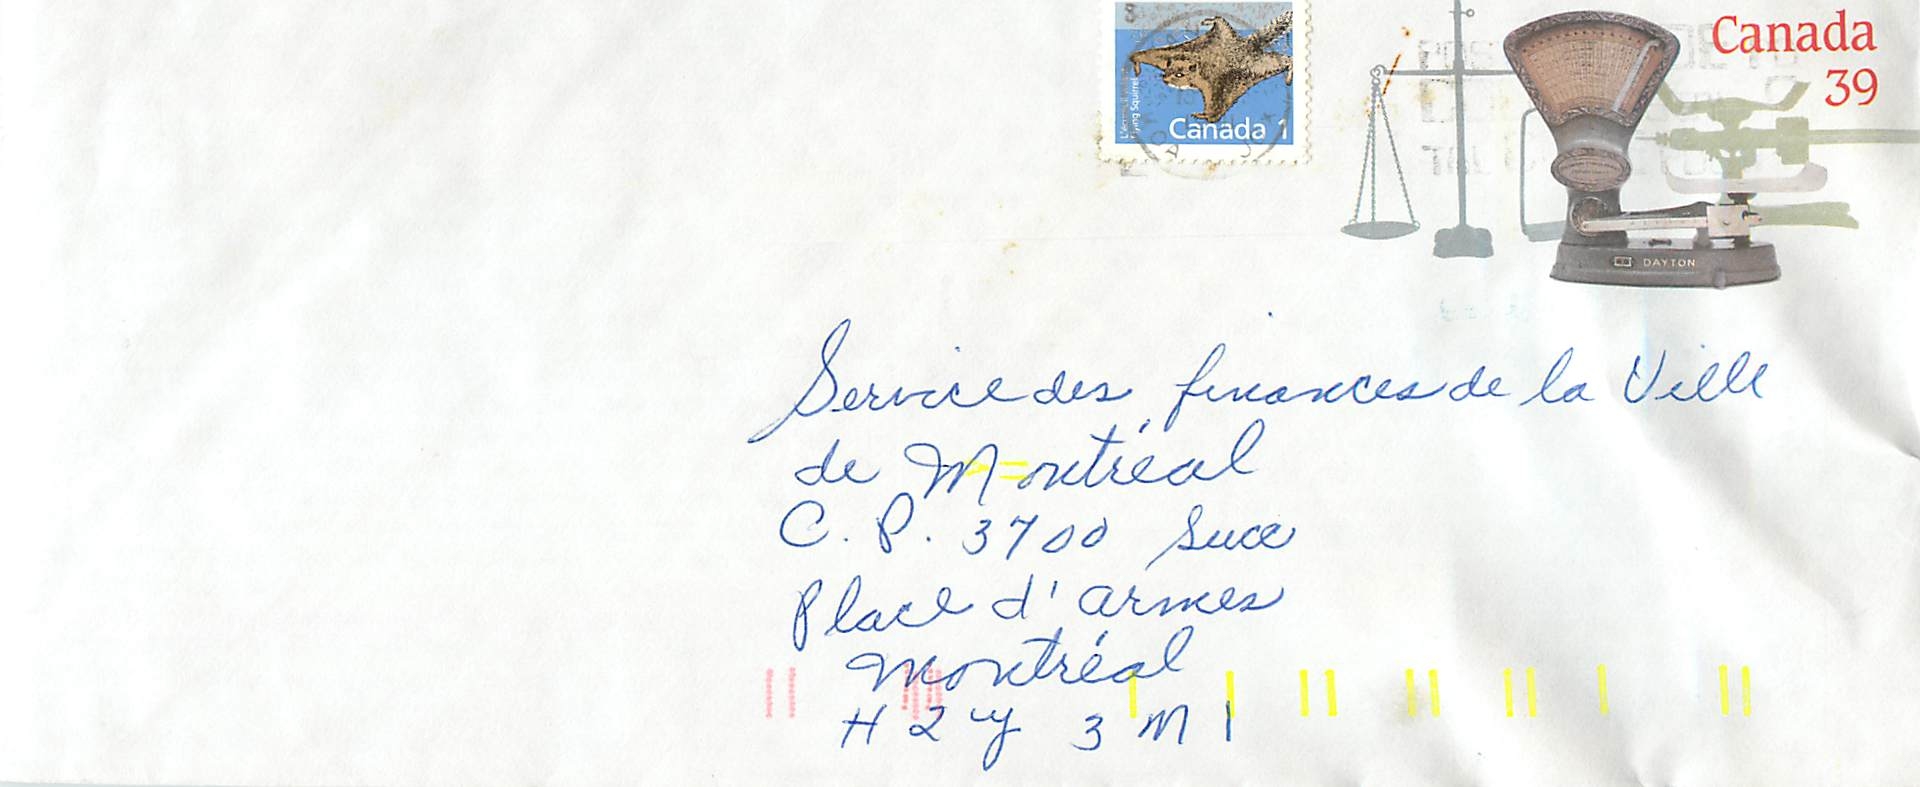 Canada
39
Flying squirrel
Canada 1
DAYTON
Service des finances de la Ville
de Montréal
C. P. 3700 Succ
Place d'armes
Montréal
H2Y 3M1